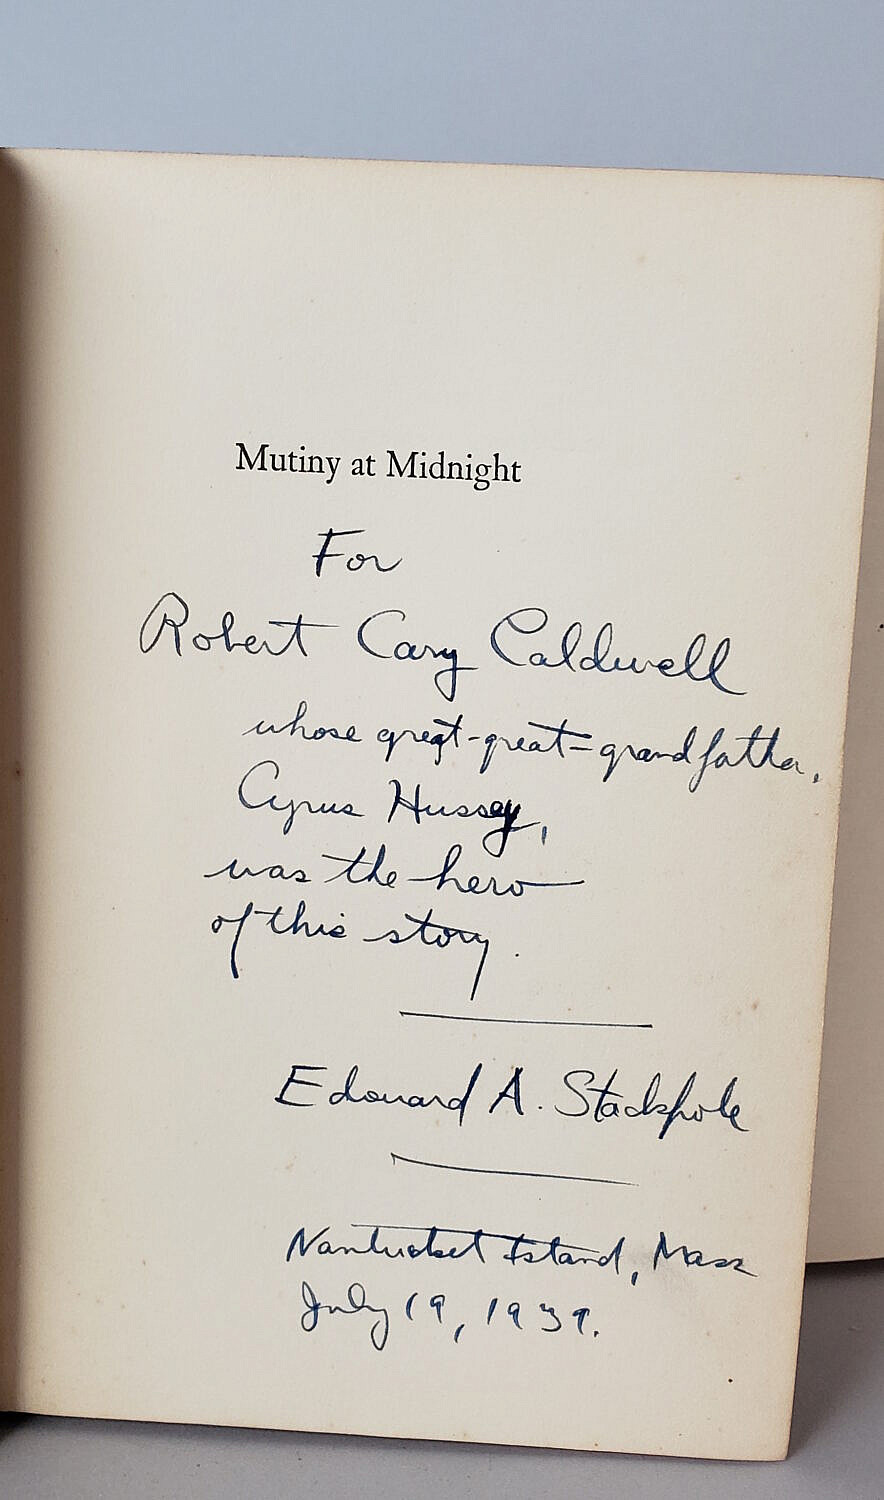 Mutiny at Midnight
For
Robert Cary Caldwell
whose great-great-grandfather,
Cyrus Hussey,
was the hero
of this story.
Edouard A. Stackpole
Nantucket Island, Mass
July 19, 1939.